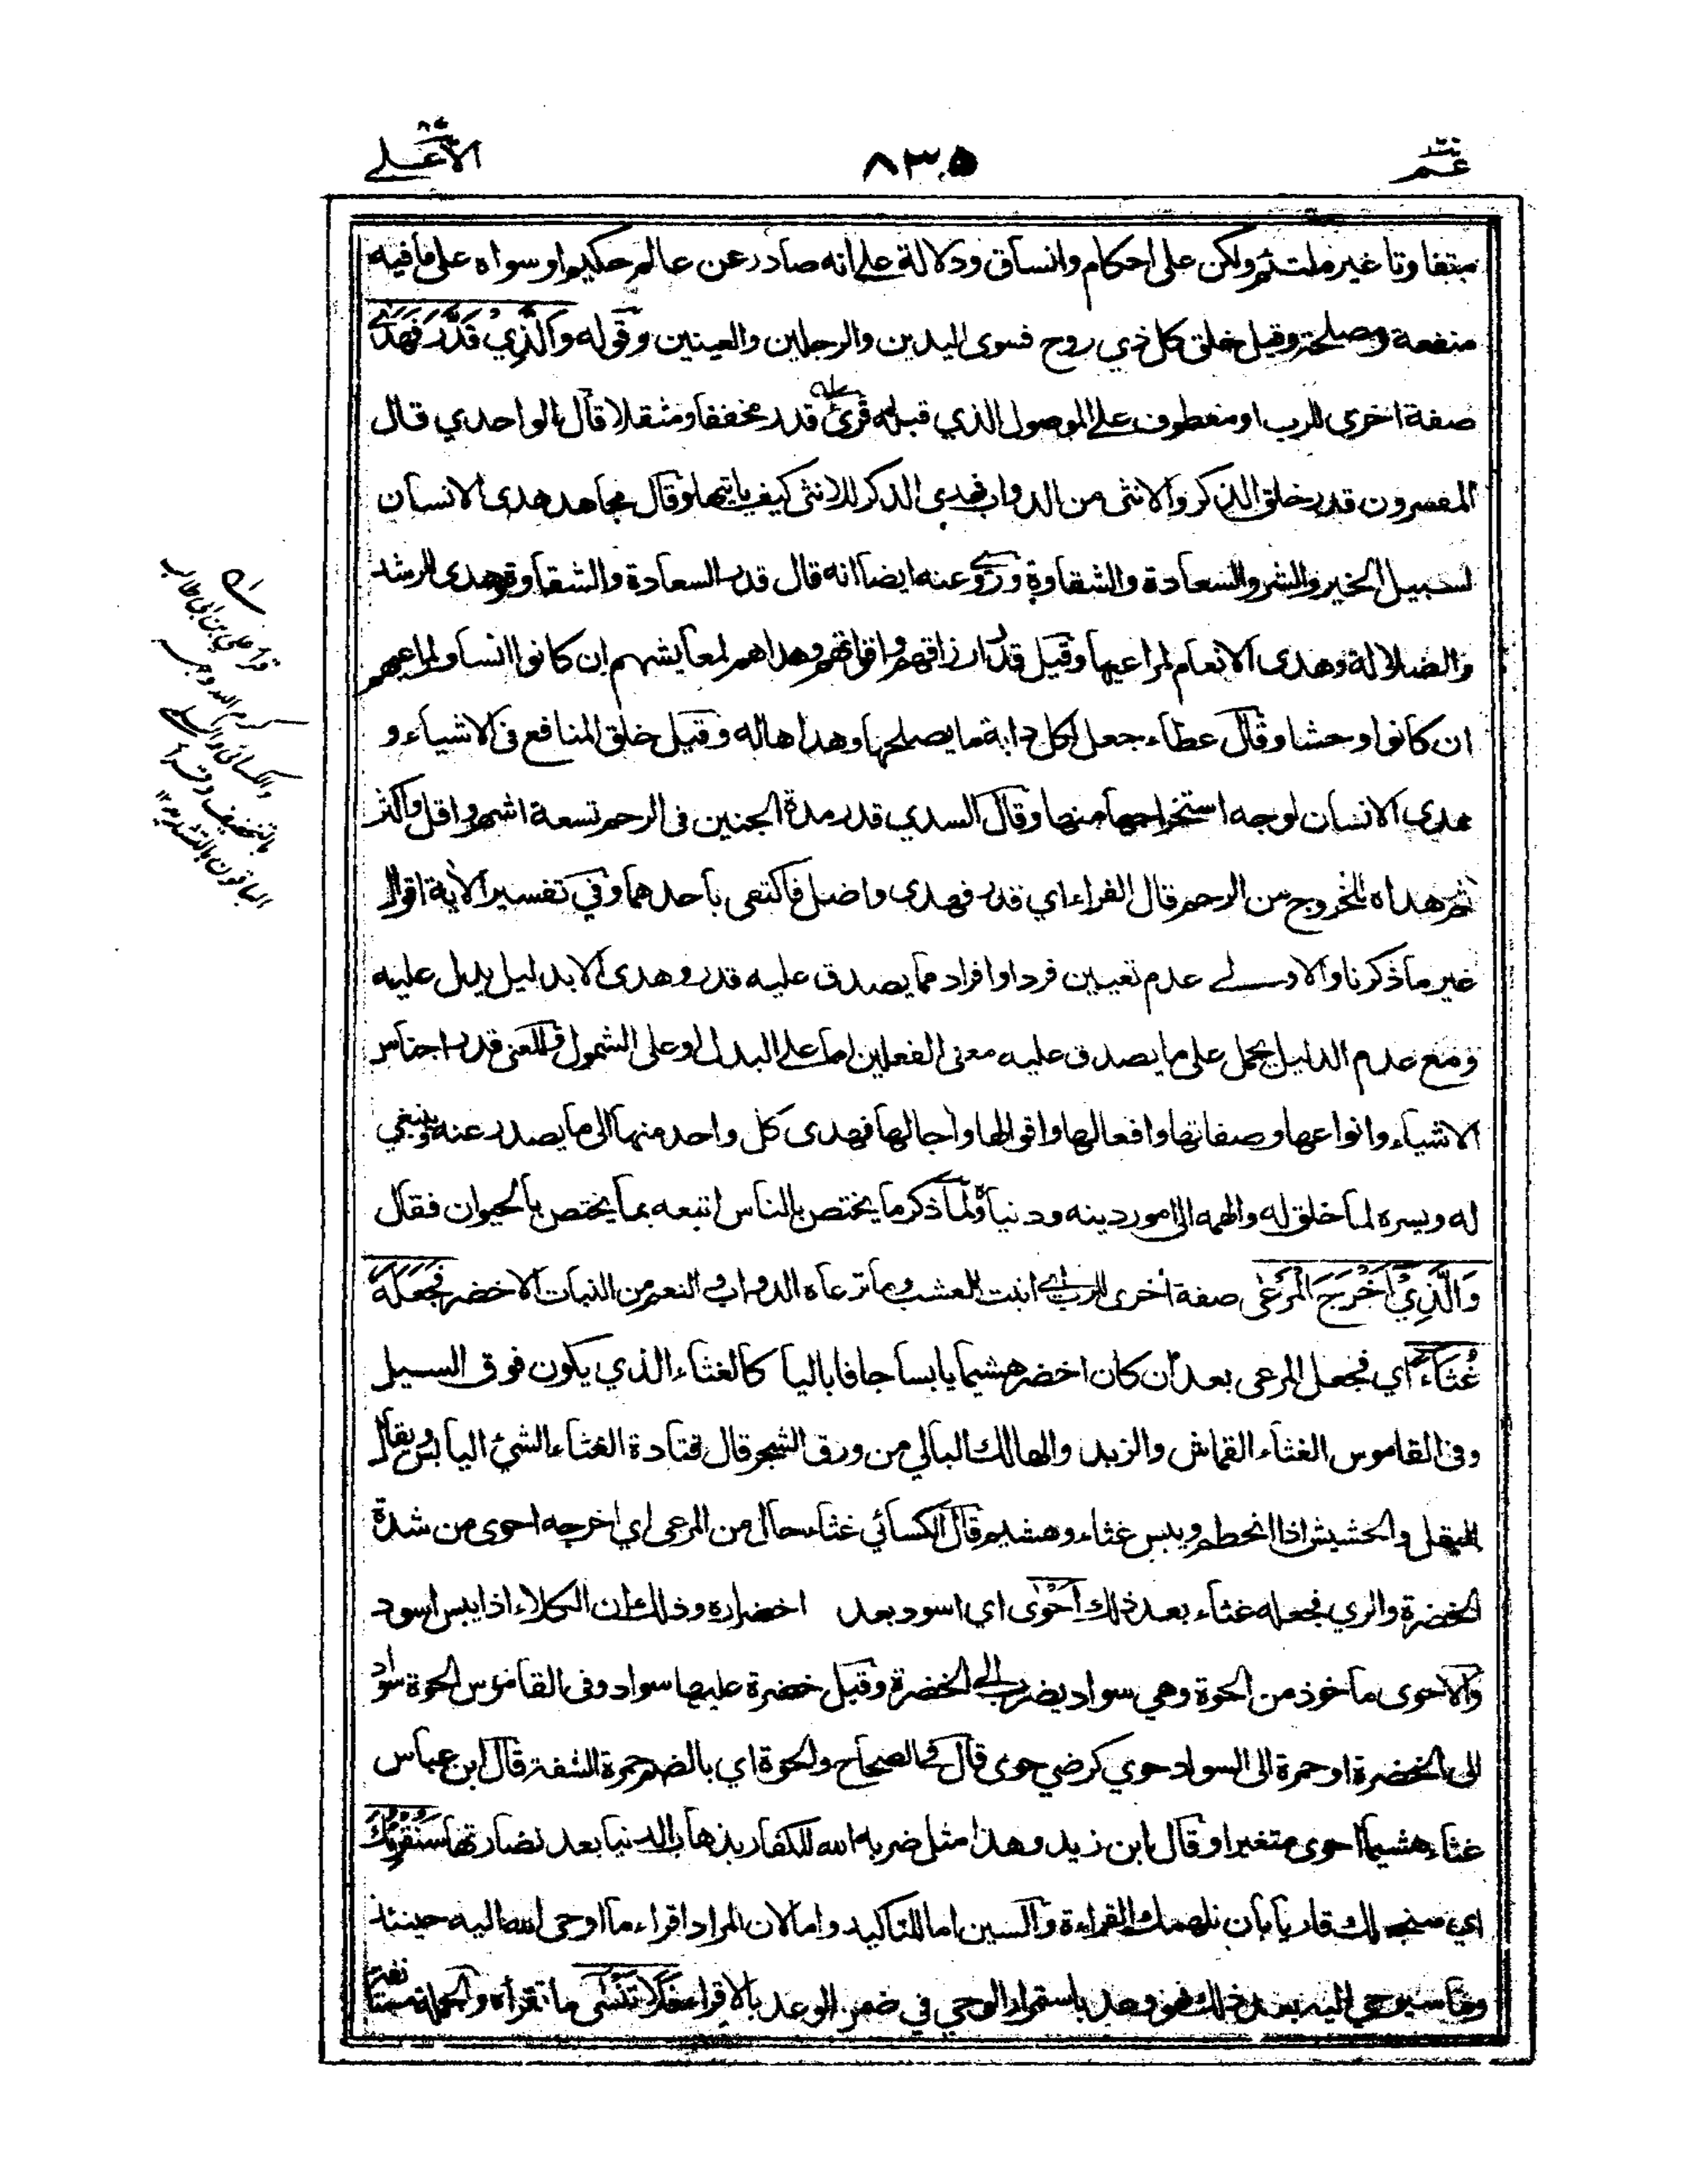 عم
٨٣٥
الأعلى ٨٧
متفاوتا غير ملتئم ولكن على احكام واتساق ودلالة على انه صادر عن عالم حكيم او سواه على ما فيه
منفعة ومصلحة وقيل خلق كل ذي روح فسوى اليدين والرجلين والعينين وقوله وَالَّذِيْ قَدَّرَ فَهَدٰى
صفة اخرى للرب او معطوف على الموصول الذي قبله قرئ قدر مخففا ومثقلا قال الواحدي قال
المفسرون قدر خلق الذكر والانثى من الدواب فهدى الذكر للانثى كيف ياتيها وقال مجاهد هدى الانسان
لسبيل الخير والشر والسعادة والشقاوة وروي عنه ايضا انه قال قدر السعادة والشقاوة وهدى للرشد
والضلالة وهدى الانعام لمراعيها وقيل قدر ارزاقهم واقواتهم وهداهم لمعايشهم ان كانوا انسا ولمراعيهم
ان كانوا وحشا وقال عطاء جعل لكل دابة ما يصلحها وهداها له وقيل خلق المنافع في الاشياء و
هدى الانسان لوجه استخراجها منها وقال السدي قدر مدة الجنين في الرحم تسعة اشهر واقل واكثر
ثم هداه للخروج من الرحم قال الفراء اي قدر فهدى واضل فاكتفى باحدهما وفي تفسير الاية اقوال
غير ما ذكرنا والاولى عدم تعيين فرد او افراد مما يصدق عليه قدر وهدى الا بدليل يدل عليه
ومع عدم الدليل يحمل على ما يصدق عليه معنى الفعلين اما على البدل او على الشمول والمعنى قدر اجناس
الاشياء وانواعها وصفاتها وافعالها واقوالها واجالها فهدى كل واحد منها الى ما يصدر عنه وينبغي
له ويسره لما خلق له والهمه الى امور دينه ودنياه ولما ذكر ما يختص بالناس اتبعه بما يختص بالحيوان فقال
وَالَّذِيْ اَخْرَجَ الْمَرْعٰى صفة اخرى للرب اي انبت العشب وما ترعاه الدواب والنعم من النبات الاخضر فَجَعَلَهٗ
غُثَآءً اي فجعل المرعى بعد ان كان اخضر هشيما يابسا جافا باليا كالغثاء الذي يكون فوق السيل
وفي القاموس الغثاء القماش والزبد والهالك البالي من ورق الشجر قال قتادة الغثاء الشئ اليابس ويقال
للبقل والحشيش اذا انحطم ويبس غثاء وهشيم قال الكسائي غثاء حال من المرعى اي اخرجه احوى من شدة
الخضرة والري فجعله غثاء بعد ذلك اَحْوٰى اي اسود بعد اخضراره وذلك ان الكلاء اذا يبس اسود
والاحوى ماخوذ من الحوة وهي سواد يضرب الى الخضرة وقيل خضرة عليها سواد وفي القاموس الحوة سواد
الى الخضرة او حمرة الى السواد حوي كرضي حوى قال في الصحاح والحوة اي بالضم حمرة الشفة قال ابن عباس
غثاء هشيما احوى متغيرا وقال ابن زيد وهذا مثل ضربه الله للكفار بذهاب الدنيا بعد نضارتها سَنُقْرِئُكَ
اي سنجعلك قاريا بان نلهمك القراءة والسين اما للتاكيد واما لان المراد اقراء ما اوحى الله اليه حينئذ
وما سيوحي اليه بعد ذلك فهو وعد باستمرار الوحي في ضمن الوعد بالاقراء فَلَا تَنْسٰى ما تقرأه والجملة مستانفة
قرأ علي بن ابي طالب
كرم الله وجهه
والكسائي والسلمي
بالتخفيف وقرأ
الباقون بالتشديد ١٢